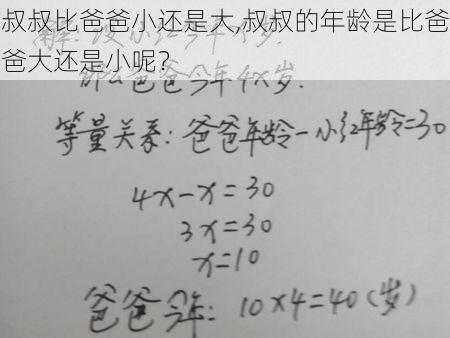 叔叔比爸爸小还是大,叔叔的年龄是比爸
爸大还是小呢?
解:设小红今年x岁.
那么爸爸今年4x岁.
等量关系:爸爸年龄-小红年龄=30
4x-x=30
3x=30
x=10
爸爸今年:10×4=40(岁)